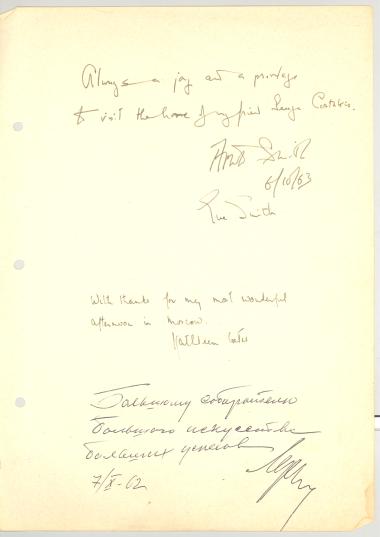 Always a joy and a privilege
to visit the home of my friend George Costakis.
Smith
6/10/63
Eve Smith
With thanks for my most wonderful
afternoon in Moscow.
Kathleen
Большому собирателю
большого искусства
больших успехов
7/X-62